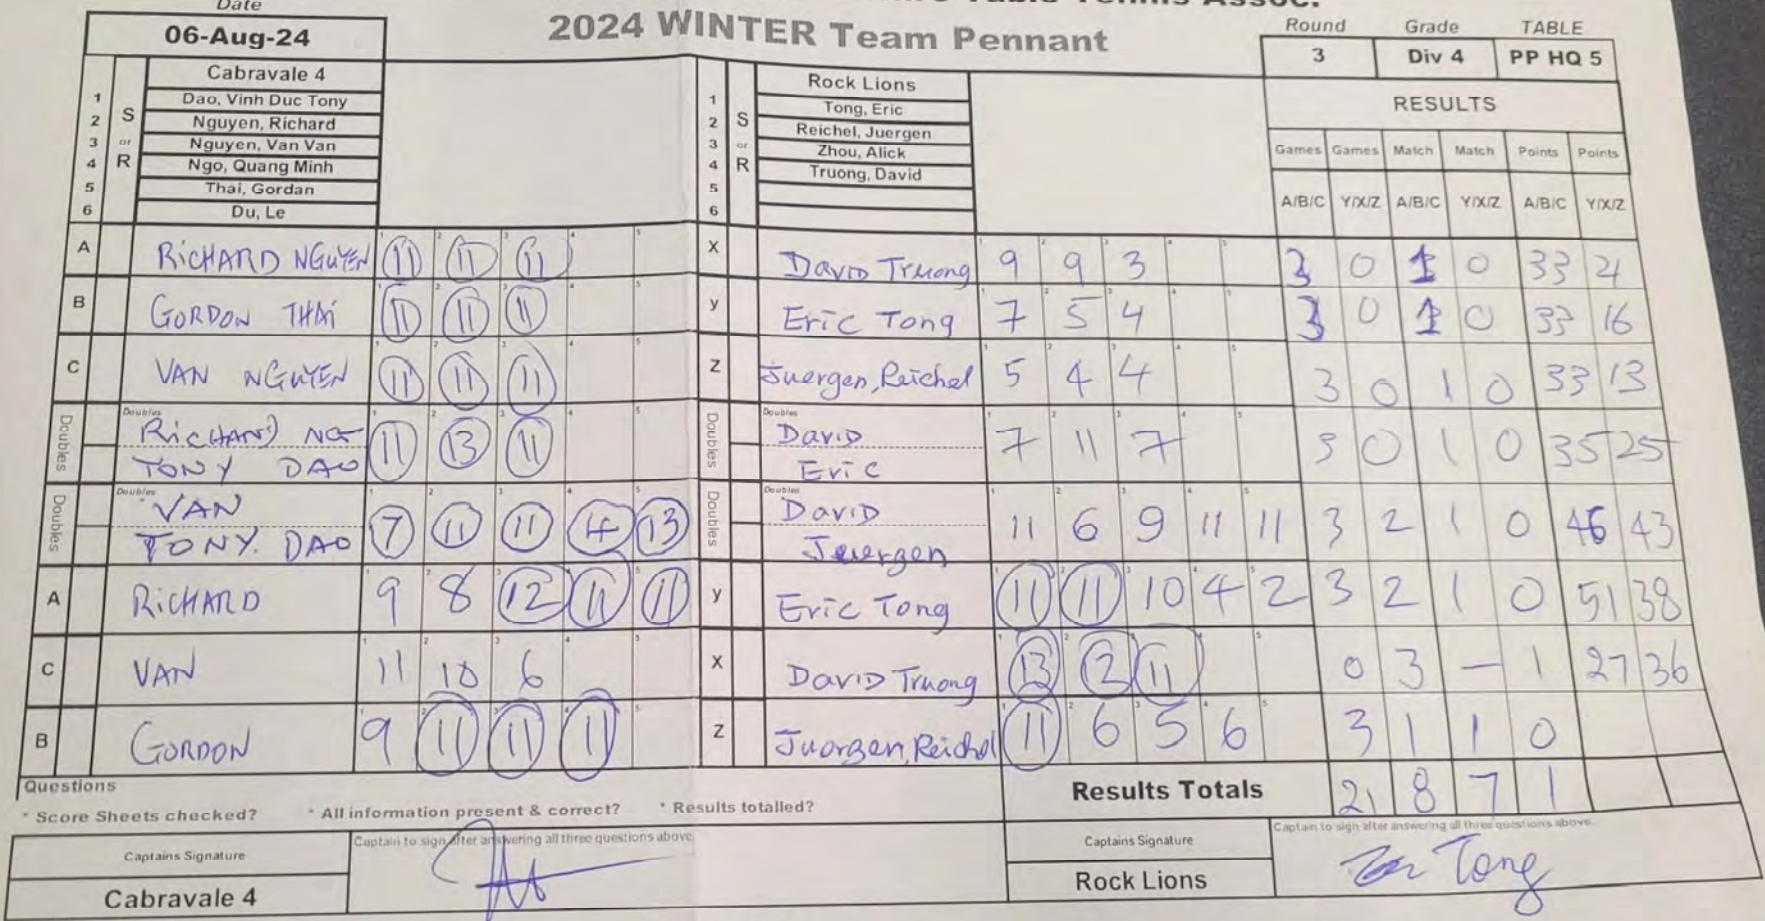 Date
06-Aug-24
2024 WINTER Team Pennant
Table Tennis Assoc.
Round Grade TABLE
3 Div 4 PP HQ 5
1 2 3 4 5 6
S or R
Cabravale 4
Dao, Vinh Duc Tony
Nguyen, Richard
Nguyen, Van Van
Ngo, Quang Minh
Thai, Gordan
Du, Le
1 2 3 4 5 6
S or R
Rock Lions
Tong, Eric
Reichel, Juergen
Zhou, Alick
Truong, David
RESULTS
Games Games Match Match Points Points
A/B/C Y/X/Z A/B/C Y/X/Z A/B/C Y/X/Z
A RiCHARD NGUYEN 11 11 11 X David Truong 9 9 3 3 0 1 0 33 21
B GORDON THAi 11 11 11 y Eric Tong 7 5 4 3 0 1 0 33 16
C VAN NGUYEN 11 11 11 Z Juergen, Reichel 5 4 4 3 0 1 0 33 13
Doubles Doubles RiCHARD NG 11 13 11 Doubles Doubles David 7 11 7 3 0 1 0 35 25
TONY DAO Eric
Doubles Doubles VAN 7 11 11 4 13 Doubles Doubles David 11 6 9 11 11 3 2 1 0 46 43
TONY. DAO Juergen
A RiCHARD 9 8 12 11 11 y Eric Tong 11 11 10 4 2 3 2 1 0 51 38
C VAN 11 10 6 X David Truong 13 12 11 0 3 — 1 27 36
B GORDON 9 11 11 11 Z Juergen, Reichel 11 6 5 6 3 1 1 0
Questions
* Score Sheets checked? * All information present & correct? * Results totalled?
Results Totals 21 8 7 1
Captains Signature
Captain to sign after answering all three questions above.
Cabravale 4
Captains Signature
Captain to sign after answering all three questions above.
Rock Lions
Tong